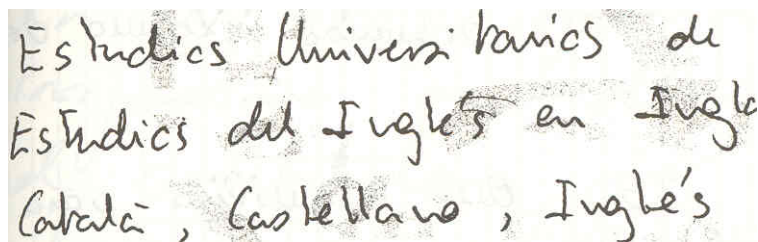 Estudios Universitarios de
Estudios del Inglés en Ingla
Catalán, Castellano, Inglés